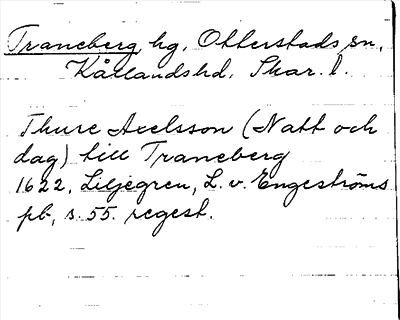 Traneberg hg, Otterstads sn,
Kållandshd. Skar. l.
Thure Axelsson (Natt och
dag) till Traneberg
1622, Liljegren, L. v. Engeströms
pb, s. 55. regest.